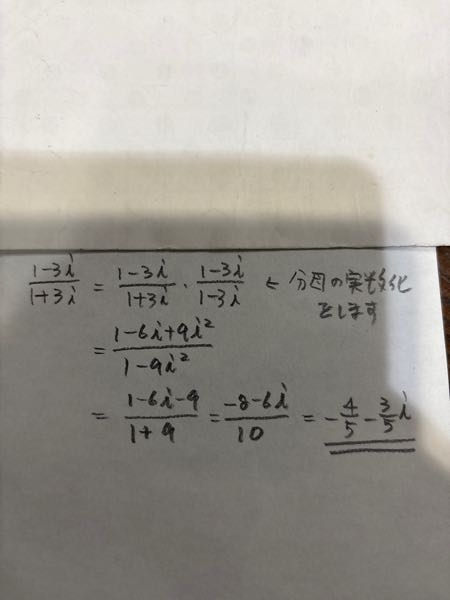 (1-3i)/(1+3i) = (1-3i)/(1+3i) · (1-3i)/(1-3i) ← 分母の実数化
をします
= (1-6i+9i²)/(1-9i²)
= (1-6i-9)/(1+9) = (-8-6i)/10 = -4/5 - 3/5 i